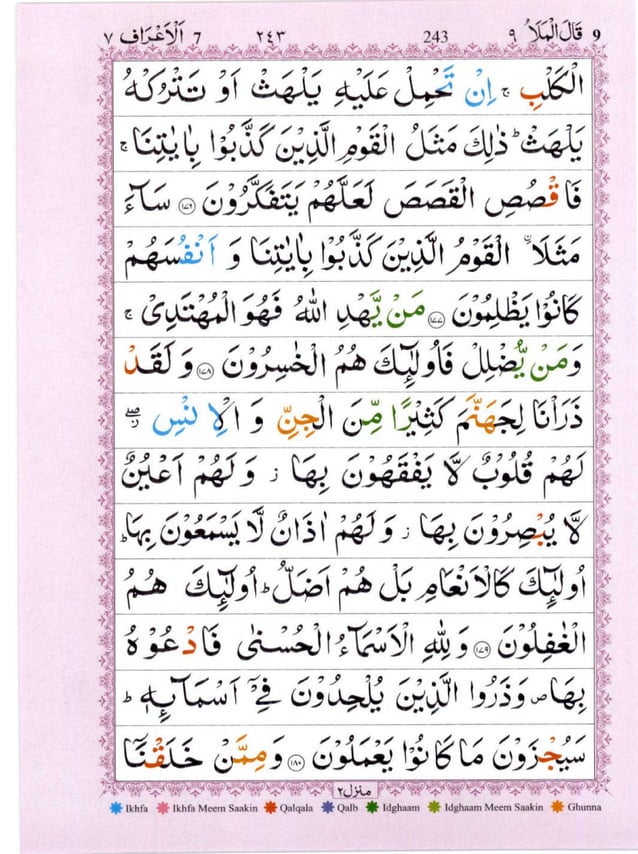 ٧ اَلْاَعْرَاف 7 ٢٤٣ 243 ٩ قَالَ الْمَلَاُ 9
الْكَلْبِ ۚ اِنْ تَحْمِلْ عَلَيْهِ يَلْهَثْ اَوْ تَتْرُكْهُ
يَلْهَثْ ؕ ذٰلِكَ مَثَلُ الْقَوْمِ الَّذِيْنَ كَذَّبُوْا بِاٰيٰتِنَا ۚ
فَاقْصُصِ الْقَصَصَ لَعَلَّهُمْ يَتَفَكَّرُوْنَ ﴿١٧٦﴾ سَآءَ
مَثَلَا ۨ الْقَوْمُ الَّذِيْنَ كَذَّبُوْا بِاٰيٰتِنَا وَ اَنْفُسَهُمْ
كَانُوْا يَظْلِمُوْنَ ﴿١٧٧﴾ مَنْ يَّهْدِ اللّٰهُ فَهُوَ الْمُهْتَدِىْ ۚ
وَمَنْ يُّضْلِلْ فَاُولٰٓئِكَ هُمُ الْخٰسِرُوْنَ ﴿١٧٨﴾ وَ لَقَدْ
ذَرَاْنَا لِجَهَنَّمَ كَثِيْرًا مِّنَ الْجِنِّ وَ الْاِنْسِ ۖ ز
لَهُمْ قُلُوْبٌ لَّا يَفْقَهُوْنَ بِهَا ز وَلَهُمْ اَعْيُنٌ
لَّا يُبْصِرُوْنَ بِهَا ز وَلَهُمْ اٰذَانٌ لَّا يَسْمَعُوْنَ بِهَا ؕ
اُولٰٓئِكَ كَالْاَنْعَامِ بَلْ هُمْ اَضَلُّ ؕ اُولٰٓئِكَ هُمُ
الْغٰفِلُوْنَ ﴿١٧٩﴾ وَلِلّٰهِ الْاَسْمَآءُ الْحُسْنٰى فَادْعُوْهُ
بِهَا ص وَذَرُوا الَّذِيْنَ يُلْحِدُوْنَ فِىْٓ اَسْمَآئِهٖ ؕ
سَيُجْزَوْنَ مَا كَانُوْا يَعْمَلُوْنَ ﴿١٨٠﴾ وَمِمَّنْ خَلَقْنَآ
منزل ٢
Ikhfa Ikhfa Meem Saakin Qalqala Qalb Idghaam Idghaam Meem Saakin Ghunna